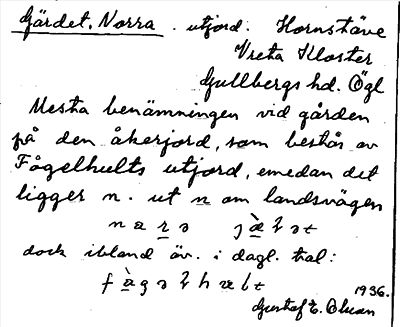 Gärdet, Norra . utjord. Hornstäve
Vreta Kloster
Gullbergs hd. Ögl
Mesta benämningen vid gården
på den åkerjord, som består av
Fågelhults utjord, emedan det
ligger n. ut n om landsvägen
dock ibland äv. i dagl. tal:
1936.
Gustaf E. Olsson